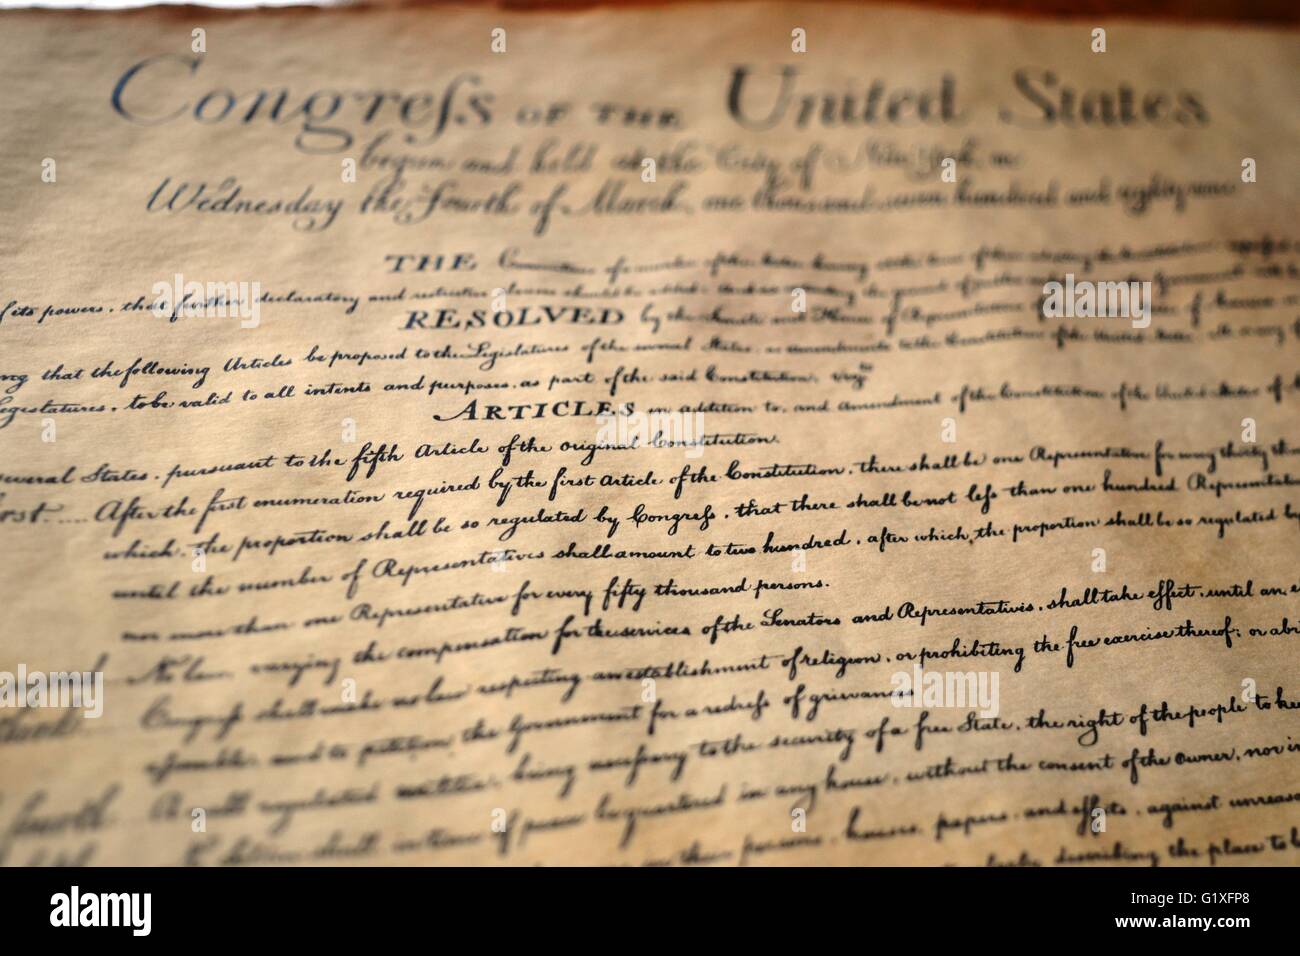 Congreſs OF THE United States
begun and held at the City of New York, on
Wednesday the Fourth of March, one thousand seven hundred and eighty nine
THE
of its powers, that further declaratory and restrictive clauses should be added
RESOLVED by the Senate and House of Representatives of the United States of America
ing that the following Articles be proposed to the Legislatures of the several States, as amendments to the Constitution of the United States,
Legislatures, to be valid to all intents and purposes, as part of the said Constitution, vizt
ARTICLES in addition to, and amendment of the Constitution of the United States of
several States, pursuant to the fifth Article of the original Constitution.
After the first enumeration required by the first Article of the Constitution, there shall be one Representative for every thirty
which, the proportion shall be so regulated by Congreſs, that there shall be not leſs than one hundred Representati
until the number of Representatives shall amount to two hundred, after which, the proportion shall be so regulated by
nor more than one Representative for every fifty thousand persons.
No law, varying the compensation for the services of the Senators and Representatives, shall take effect, until an e
Congreſs shall make no law respecting an establishment of religion, or prohibiting the free exercise thereof; or abri
aſsemble, and to petition the Government for a redreſs of grievances
A well regulated militia, being neceſsary to the security of a free State, the right of the people to kee
No Soldier shall, in time of peace be quartered in any house, without the consent of the owner, nor in
in their persons, houses, papers, and effects, against unreaso
describing the place to b
alamy
Image ID: G1XFP8
www.alamy.com